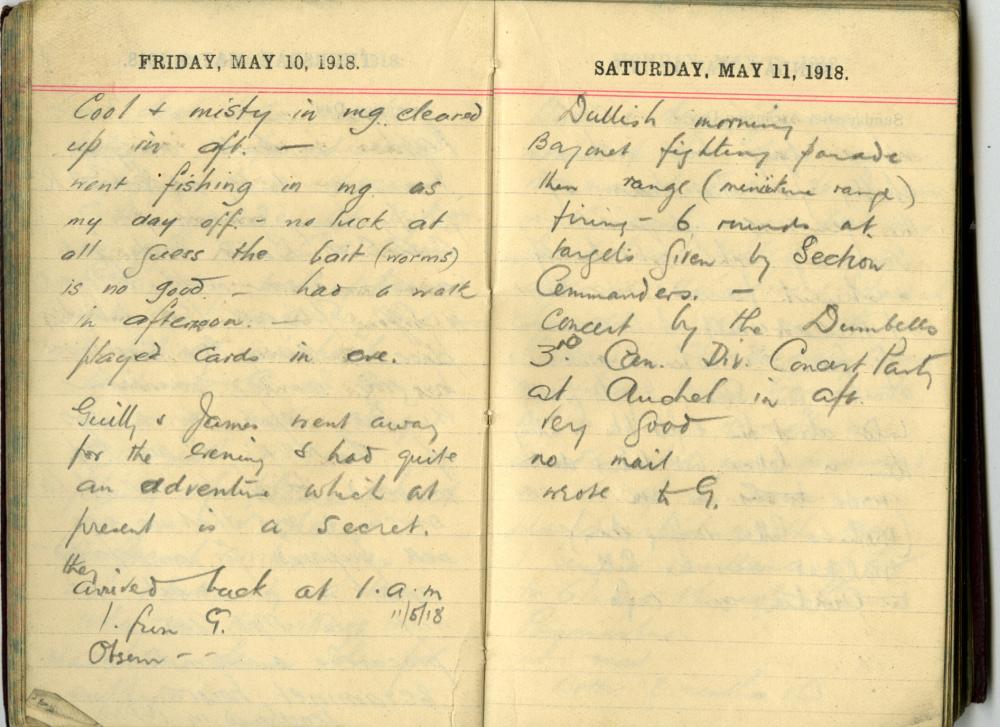 FRIDAY, MAY 10, 1918.
Cool + misty in mg. cleared
up in aft. —
went fishing in mg as
my day off – no luck at
all guess the bait (worms)
is no good. — had a walk
in afternoon. —
played cards in eve.
Guilly & James went away
for the evening & had quite
an adventure which at
present is a secret.
they
arrived back at 1. a.m
11/5/18
1. from G.
SATURDAY, MAY 11, 1918.
Dullish morning
Bayonet fighting parade
then range (miniature range)
firing – 6 rounds at
targets given by Section
Commanders. –
Concert by the Dumbells
3rd Can. Div. Concert Party
at Auchel in aft.
very good
no mail
wrote to G.